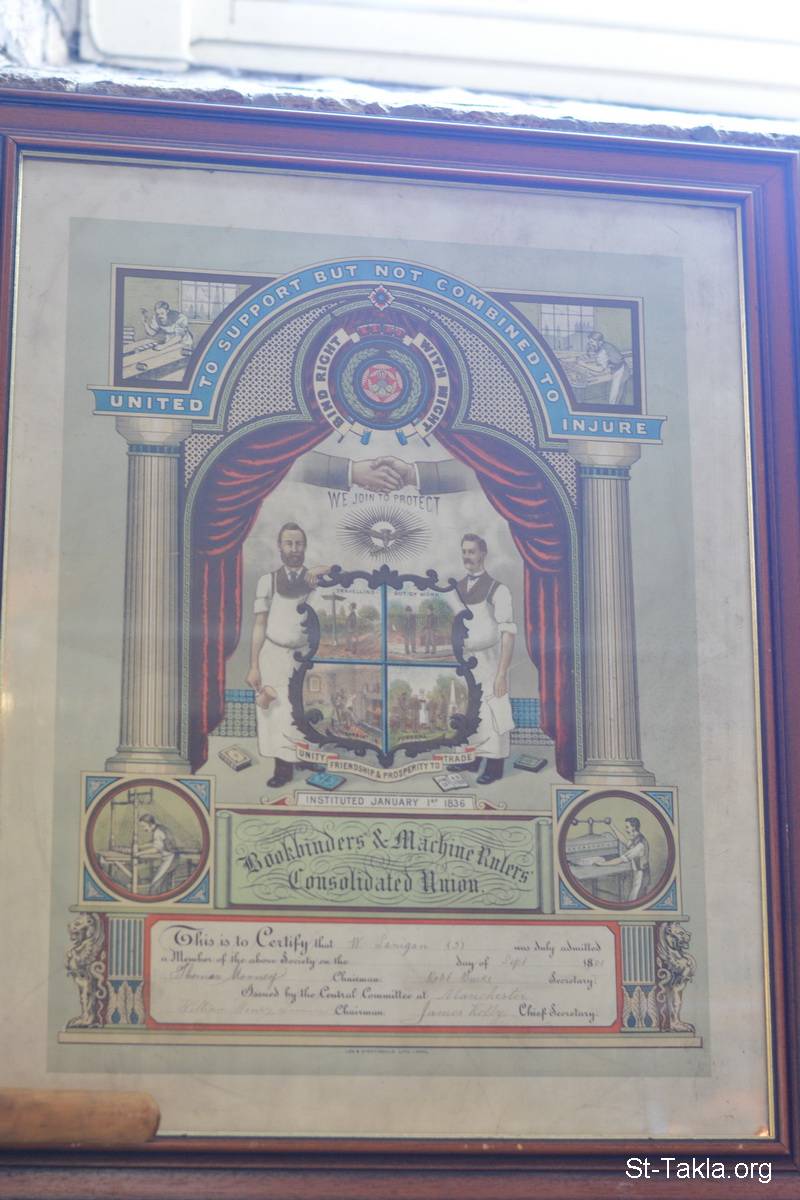 UNITED TO SUPPORT BUT NOT COMBINED TO INJURE
BIND RIGHT WITH MIGHT
WE JOIN TO PROTECT
TRAVELLING OUT OF WORK
FUNERAL
UNITY FRIENDSHIP & PROSPERITY TO TRADE
INSTITUTED JANUARY 1ST 1836
Bookbinders' & Machine Rulers'
Consolidated Union.
This is to Certify that W. Lanigan was duly admitted
a Member of the above Society on the day of Sept 18
Thomas Chairman. Secretary.
Issued by the Central Committee at Manchester
William Chairman. James Kelly Chief Secretary.
St-Takla.org